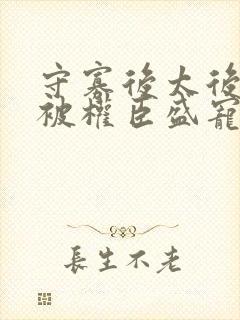 守寡後太後
被權臣盛寵
長生不老